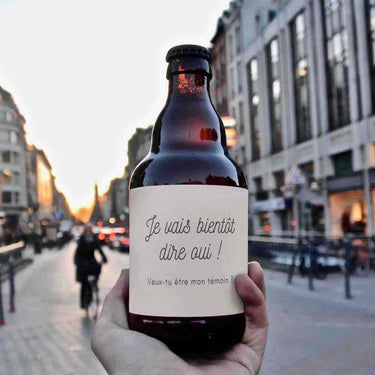 Je vais bientôt
dire oui !
Veux-tu être mon témoin ?